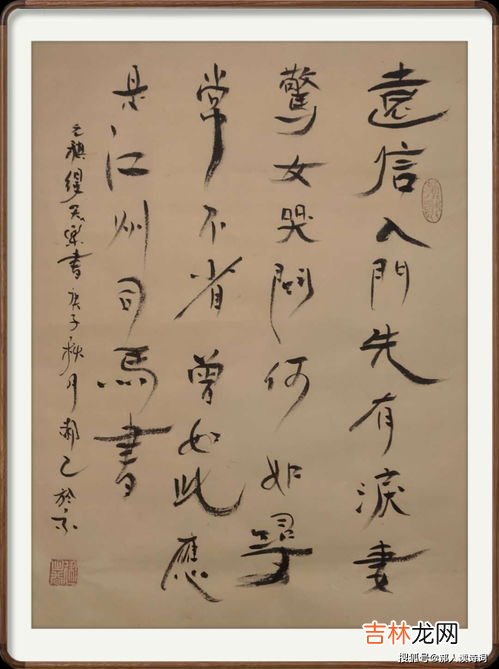 遠信入門先有淚妻
驚女哭問何如尋
常不省曾如此應
是江州司馬書
元稹得樂天書庚子秋月於京
吉林龙网
搜狐号@